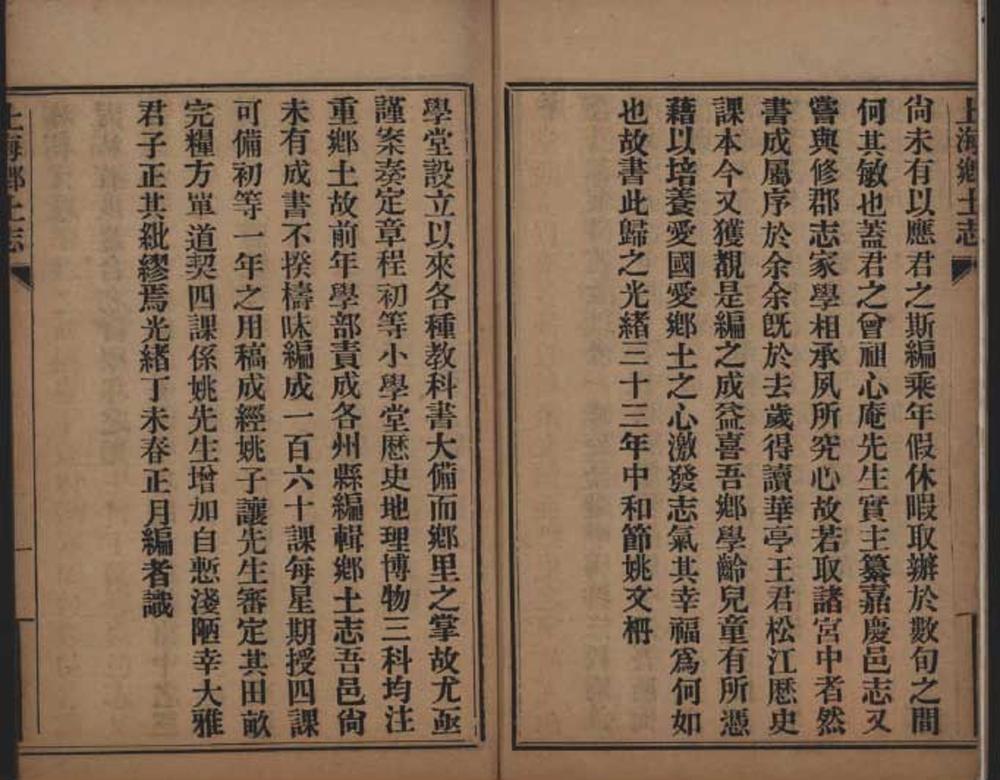 上海鄉土志
尙未有以應君之斯編乘年假休暇取辦於數旬之間
何其敏也蓋君之曾祖心庵先生實主纂嘉慶邑志又
嘗與修郡志家學相承夙所究心故若取諸宮中者然
書成屬序於余余旣於去歲得讀華亭王君松江歷史
課本今又獲覩是編之成益喜吾鄉學齡兒童有所憑
藉以培養愛國愛鄉土之心激發志氣其幸福爲何如
也故書此歸之光緒三十三年中和節姚文枬
學堂設立以來各種教科書大備而鄉里之掌故尤亟
謹案奏定章程初等小學堂歷史地理博物三科均注
重鄉土故前年學部責成各州縣編輯鄉土志吾邑尙
未有成書不揆檮昧編成一百六十課每星期授四課
可備初等一年之用稿成經姚子讓先生審定其田畝
完糧方單道契四課係姚先生增加自慙淺陋幸大雅
君子正其紕繆焉光緒丁未春正月編者識
上海鄉土志
一